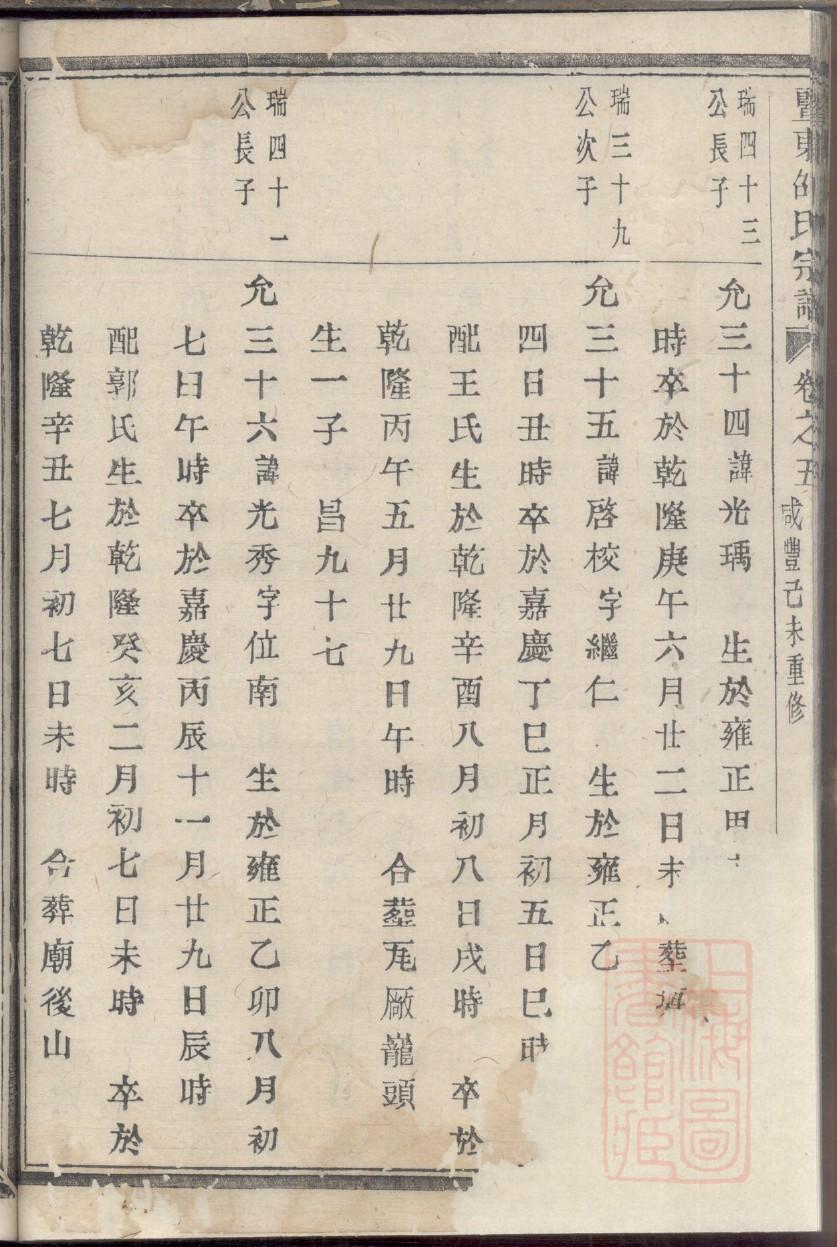 暨東邵氏宗譜 卷之五 咸豐己未重修
瑞四十三
公長子
允三十四諱光瑀 生於雍正甲
時卒於乾隆庚午六月廿二日未 塟
瑞三十九
公次子
允三十五諱啓校字繼仁 生於雍正乙
四日丑時卒於嘉慶丁巳正月初五日巳時
配王氏生於乾隆辛酉八月初八日戌時 卒於
乾隆丙午五月廿九日午時 合塟瓦厰龍頭
生一子 昌九十七
瑞四十一
公長子
允三十六諱光秀字位南 生於雍正乙卯八月初
七日午時卒於嘉慶丙辰十一月廿九日辰時
配郭氏生於乾隆癸亥二月初七日未時 卒於
乾隆辛丑七月初七日未時 合葬廟後山
上海圖
書館藏